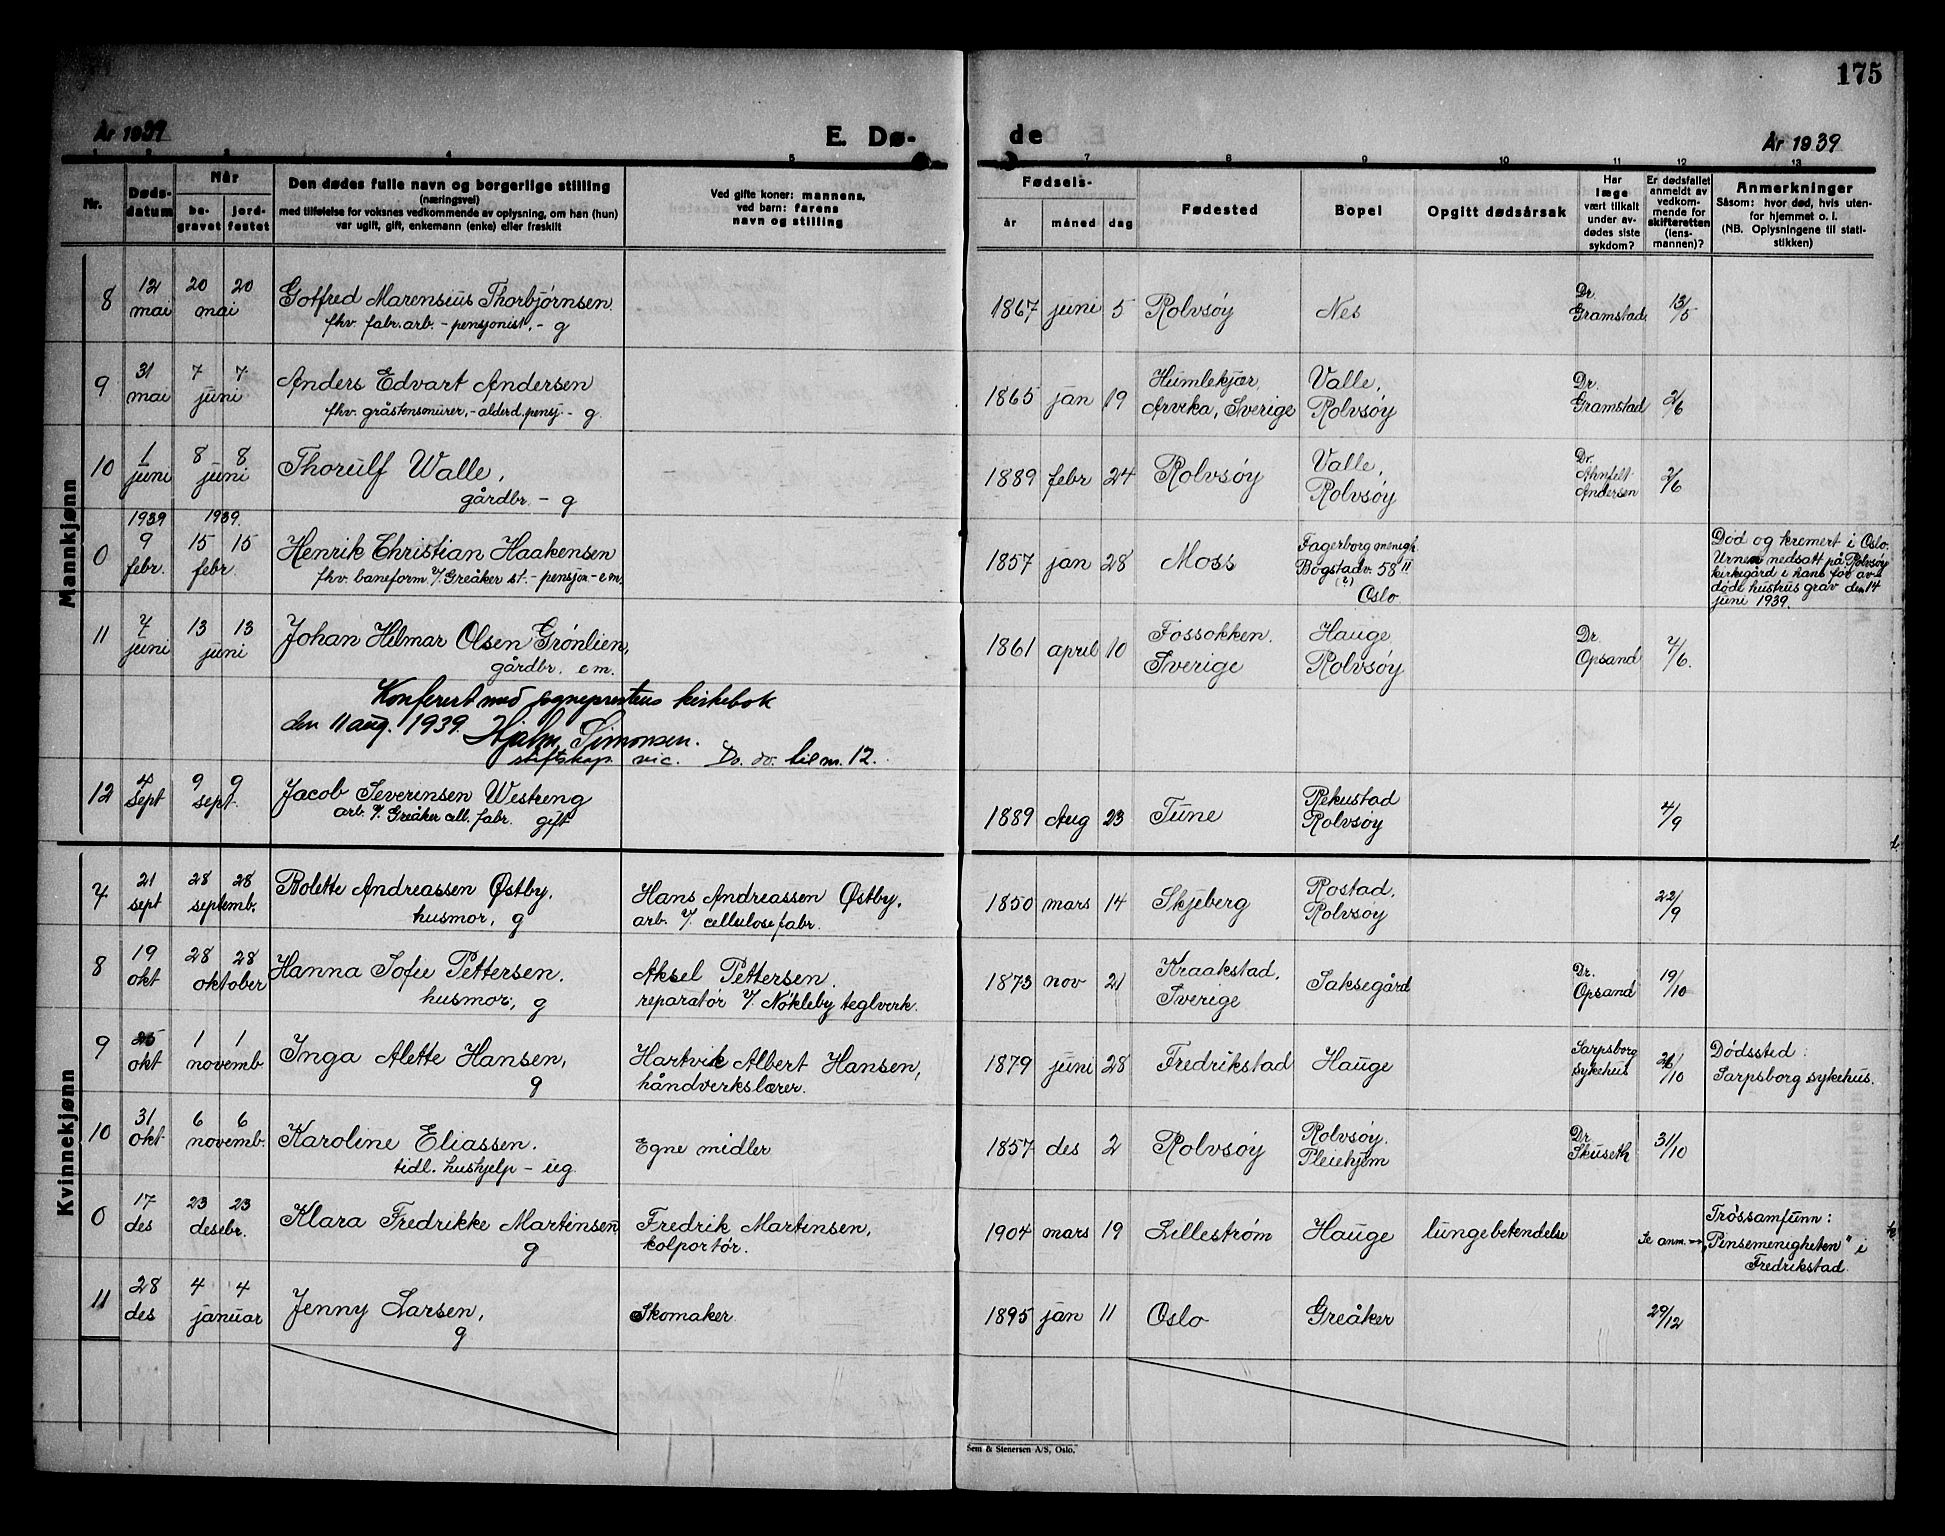 175
År 1939
E. Dø-
de
År 1939
1 2 3 4 5
7 8 9 10 11 12 13
Nr.
Døds-
datum
Når
be-
gravet
jord-
festet
Den dødes fulle navn og borgerlige stilling
(næringsvei)
med tilføielse for voksnes vedkommende av oplysning, om han (hun)
var ugift, gift, enkemann (enke) eller fraskilt
Ved gifte koner: mannens,
ved barn: farens
navn og stilling
Fødsels-
år måned dag
Fødested
Bopel
Opgitt dødsårsak
Har
læge
vært tilkalt
under av-
dødes siste
sykdom?
Er dødsfallet
anmeldt av
vedkom-
mende for
skifteretten
(lens-
mannen)?
Anmerkninger
Såsom: hvor død, hvis uten-
for hjemmet o. l.
(NB. Oplysningene til stati-
stikken)
Mannkjønn
8 12 mai 20 20 mai Gotfred Marensius Thorbjørnsen
fhv. fabr. arb. - pensjonist, - g
1867 juni 5 Rolvsøy Nes Dr. Gramstad 13/5
9 31 mai 7 7 juni Anders Edvart Andersen
fhv. gråstensmurer, - alderd. pensj. - g.
1865 jan 19 Humlekjær, Arvika, Sverige Valle, Rolvsøy Dr. Gramstad 2/6
10 1 juni 8 8 juni Thorulf Walle,
gårdbr. - g
1889 febr 24 Rolvsøy Valle, Rolvsøy Dr. Ahnfelt Andersen 2/6
0 1939 9 febr. 1939. 15 15 febr. Henrik Christian Haakensen
fhv. baneform. v/ Greåker st. - pensjon - e m.
1857 jan 28 Moss Fagerborg menigh. Bogstadv. 58 II (?) Oslo
Død og kremert i Oslo.
Urnen nedsatt på Rolvsøy
kirkegård i hans før av-
døde hustrus grav den 14
juni 1939.
11 7 juni 13 13 juni Johan Hilmar Olsen Grønlien,
gårdbr. e m.
1861 april 10 Fossokken. Sverige Hauge Rolvsøy Dr. Opsand 7/6.
Konferert med sogneprestens kirkebok
den 11 aug. 1939. Hjalm. Simonsen.
stiftskap. vic. Do. do. til nr. 12.
12 4 sept 9 9 sept. Jacob Severinsen Westeng
arb. v/ Greåker cell. fabr. gift
1889 Aug 23 Tune Rekustad Rolvsøy 4/9
Kvinnekjønn
7 21 sept 28 28 septemb. Bolette Andreassen Østby.
husmor, g
Hans Andreassen Østby.
arb. v/ cellulosefabr.
1850 mars 14 Skjeberg Rostad. Rolvsøy 22/9
8 19 okt 28 28 oktober Hanna Sofie Pettersen.
husmor, g
Aksel Pettersen.
reparatør v/ Nökleby teglverk.
1873 nov 21 Kraakstad. Sverige Saksegård Dr. Opsand 19/10
9 25 okt 1 1 novemb Inga Alette Hansen,
g
Hartvik Albert Hansen,
håndverkslærer.
1879 juni 28 Fredrikstad Hauge Sarpsborg sykehus 26/10
Dødssted:
Sarpsborg sykehus.
10 31 okt 6 6 novemb. Karoline Eliassen.
tidl. hushjelp - ug.
Egne midler
1857 des 2 Rolvsøy Rolvsøy. Pleiehjem Dr. Skuseth 31/10
0 17 des 23 23 desebr. Klara Fredrikke Martinsen
g
Fredrik Martinsen,
kolportør.
1904 mars 19 Lillestrøm Hauge lungebetendelse Se anm. →
Trossamfunn:
„Pinsemenigheten" i
Fredrikstad.
11 28 des 4 4 januar Jenny Larsen,
g
Skomaker
1895 jan 11 Oslo Greåker 29/12
Sem & Stenersen A/S, Oslo.